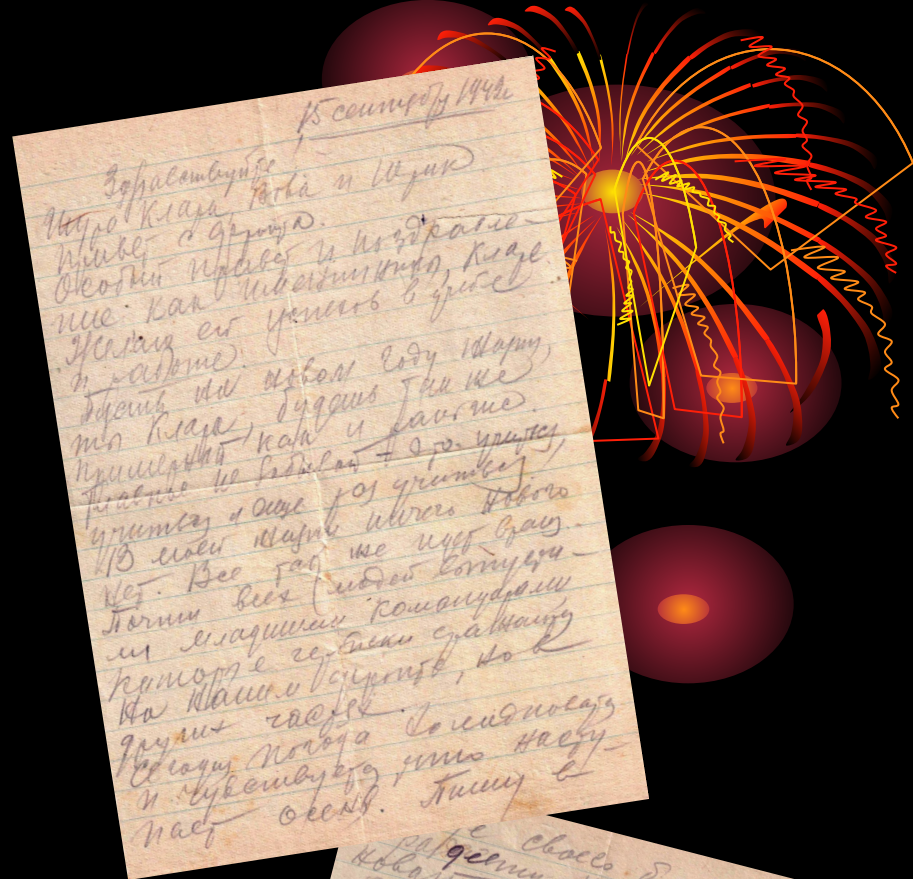 15 сентября 1942г
Здравствуйте
Шура Клара Вова и Шурик
Привет с фронта
Особый привет и поздравле-
ние как имениннику, Кларе
Желаю ей успехов в учебе
и работе.
Пусть на новом году жизни,
ты Клара, будешь так же
примерной как и раньше.
Главное не забывай учиться,
учиться и еще раз учиться,
В моей жизни ничего нового
нет. Все так же идет сраж.
Почти всех людей
ли младшими командирами
которые геройски сражают
На нашем фронте, но в
других частях.
Сегодня погода холодновата
и чувствуется, что насту-
пает осень. Пишу в
своего